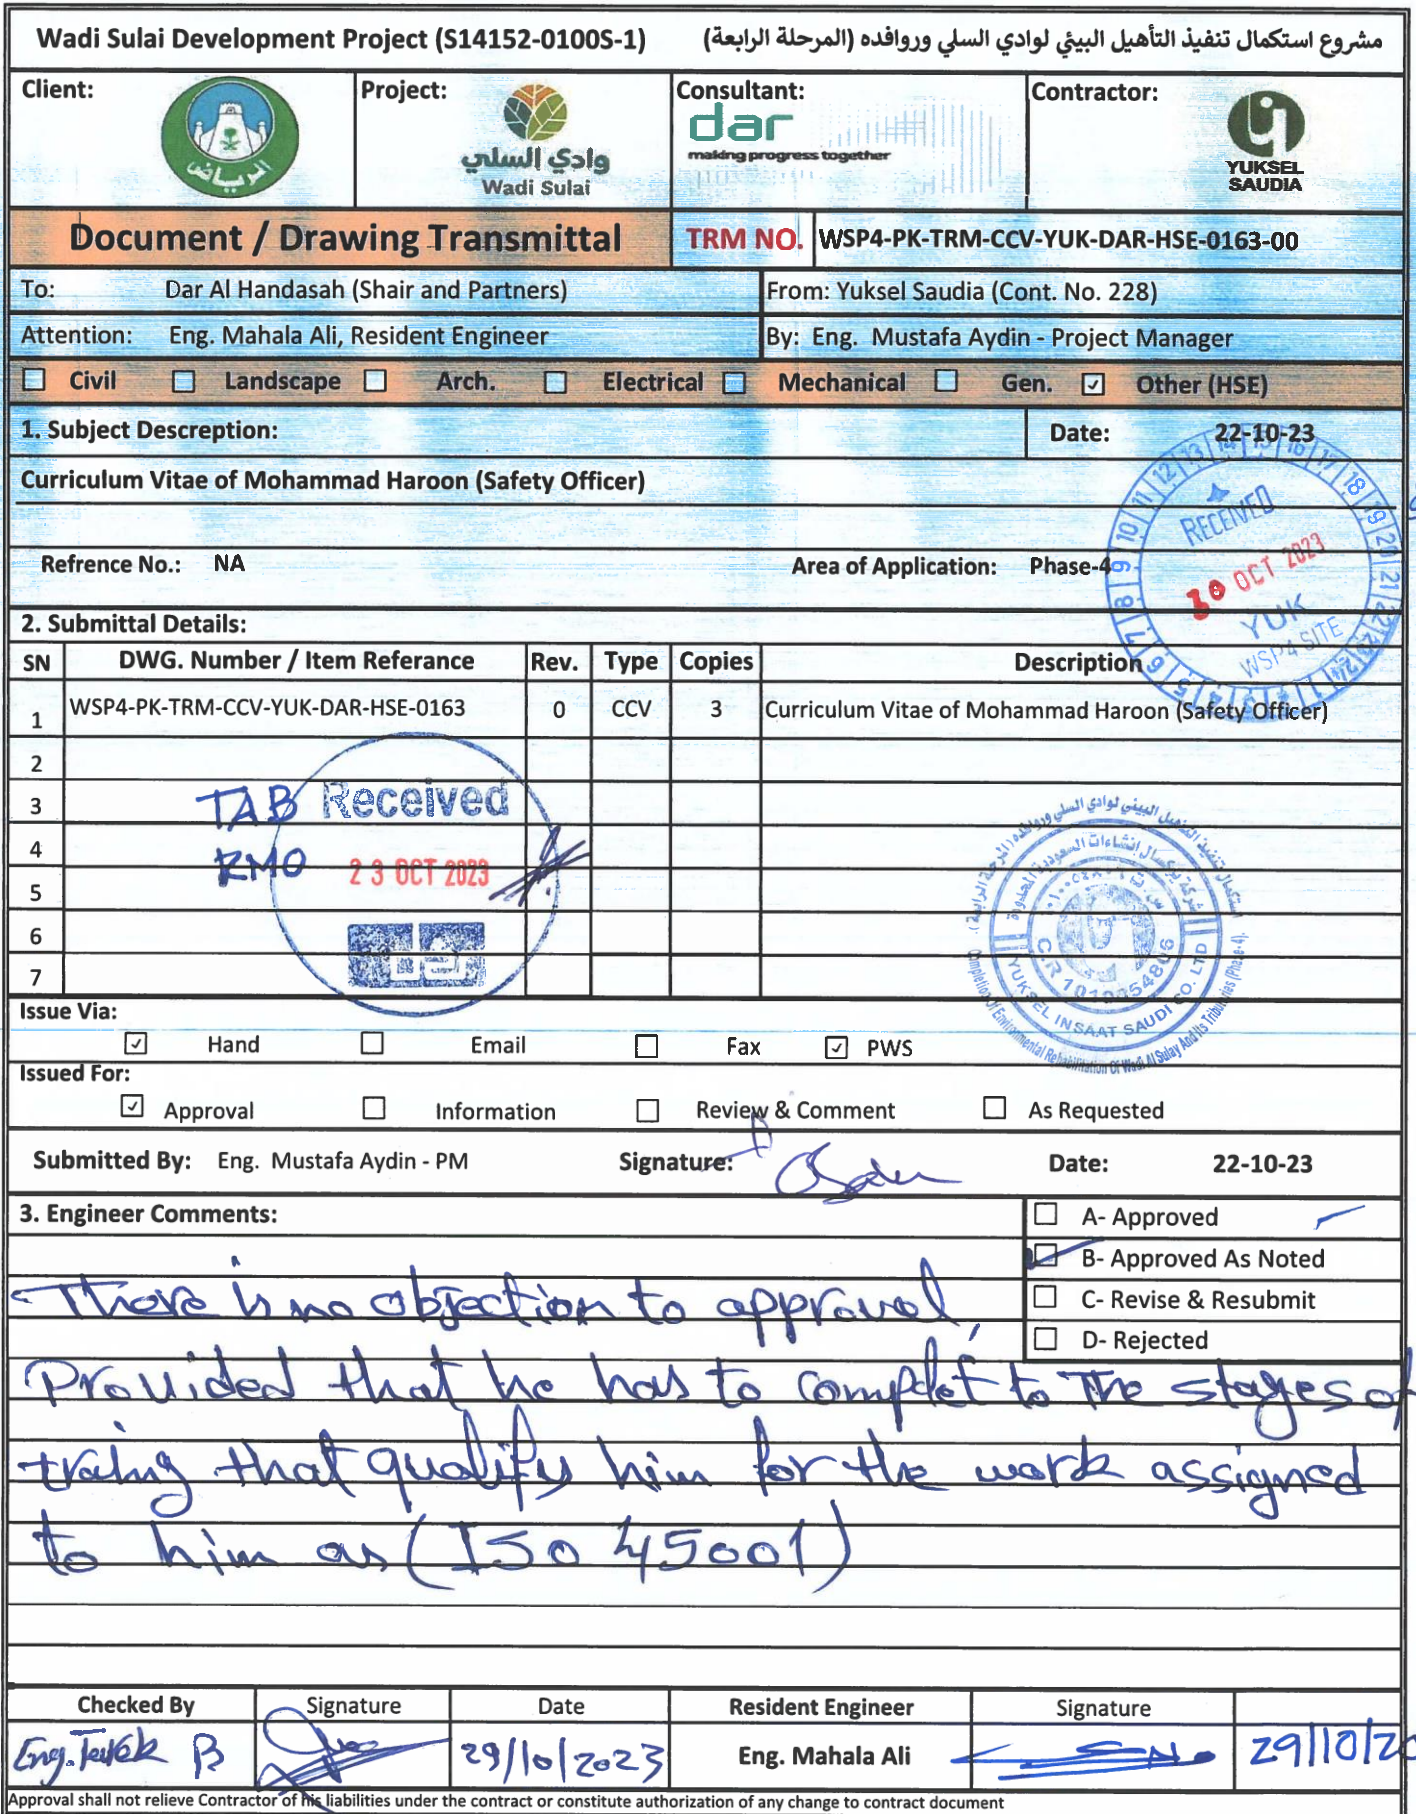 Wadi Sulai Development Project (S14152-0100S-1) مشروع استكمال تنفيذ التأهيل البيئي لوادي السلي وروافده (المرحلة الرابعة)
Client: Project: Consultant: Contractor:
الرياض
وادي السلي
Wadi Sulai
dar
making progress together
YUKSEL
SAUDIA
Document / Drawing Transmittal TRM NO. WSP4-PK-TRM-CCV-YUK-DAR-HSE-0163-00
To: Dar Al Handasah (Shair and Partners) From: Yuksel Saudia (Cont. No. 228)
Attention: Eng. Mahala Ali, Resident Engineer By: Eng. Mustafa Aydin - Project Manager
Civil Landscape Arch. Electrical Mechanical Gen. Other (HSE)
1. Subject Descreption: Date: 22-10-23
Curriculum Vitae of Mohammad Haroon (Safety Officer)
RECEIVED
OCT 2023
YUK
WSP4 SITE
Refrence No.: NA Area of Application: Phase-4
2. Submittal Details:
SN DWG. Number / Item Referance Rev. Type Copies Description
1 WSP4-PK-TRM-CCV-YUK-DAR-HSE-0163 0 CCV 3 Curriculum Vitae of Mohammad Haroon (Safety Officer)
2
3
4
5
6
7
TAB
RMO
Received
23 OCT 2023
C.R 1010054806
YUKSEL INSAAT SAUDI CO. LTD
Completion Of Environmental Rehabilitation Of Wadi Al Sulay And Its Tributeries (Phase-4).
Issue Via:
Hand Email Fax PWS
Issued For:
Approval Information Review & Comment As Requested
Submitted By: Eng. Mustafa Aydin - PM Signature: Date: 22-10-23
3. Engineer Comments:
A- Approved
B- Approved As Noted
C- Revise & Resubmit
D- Rejected
There is no objection to approval,
Provided that he has to complet to The stages of
traing that qualify him for the work assigned
to him as (ISO 45001)
Checked By Signature Date Resident Engineer Signature
Eng. Tarek B 29/10/2023 Eng. Mahala Ali 29/10/20
Approval shall not relieve Contractor of his liabilities under the contract or constitute authorization of any change to contract document